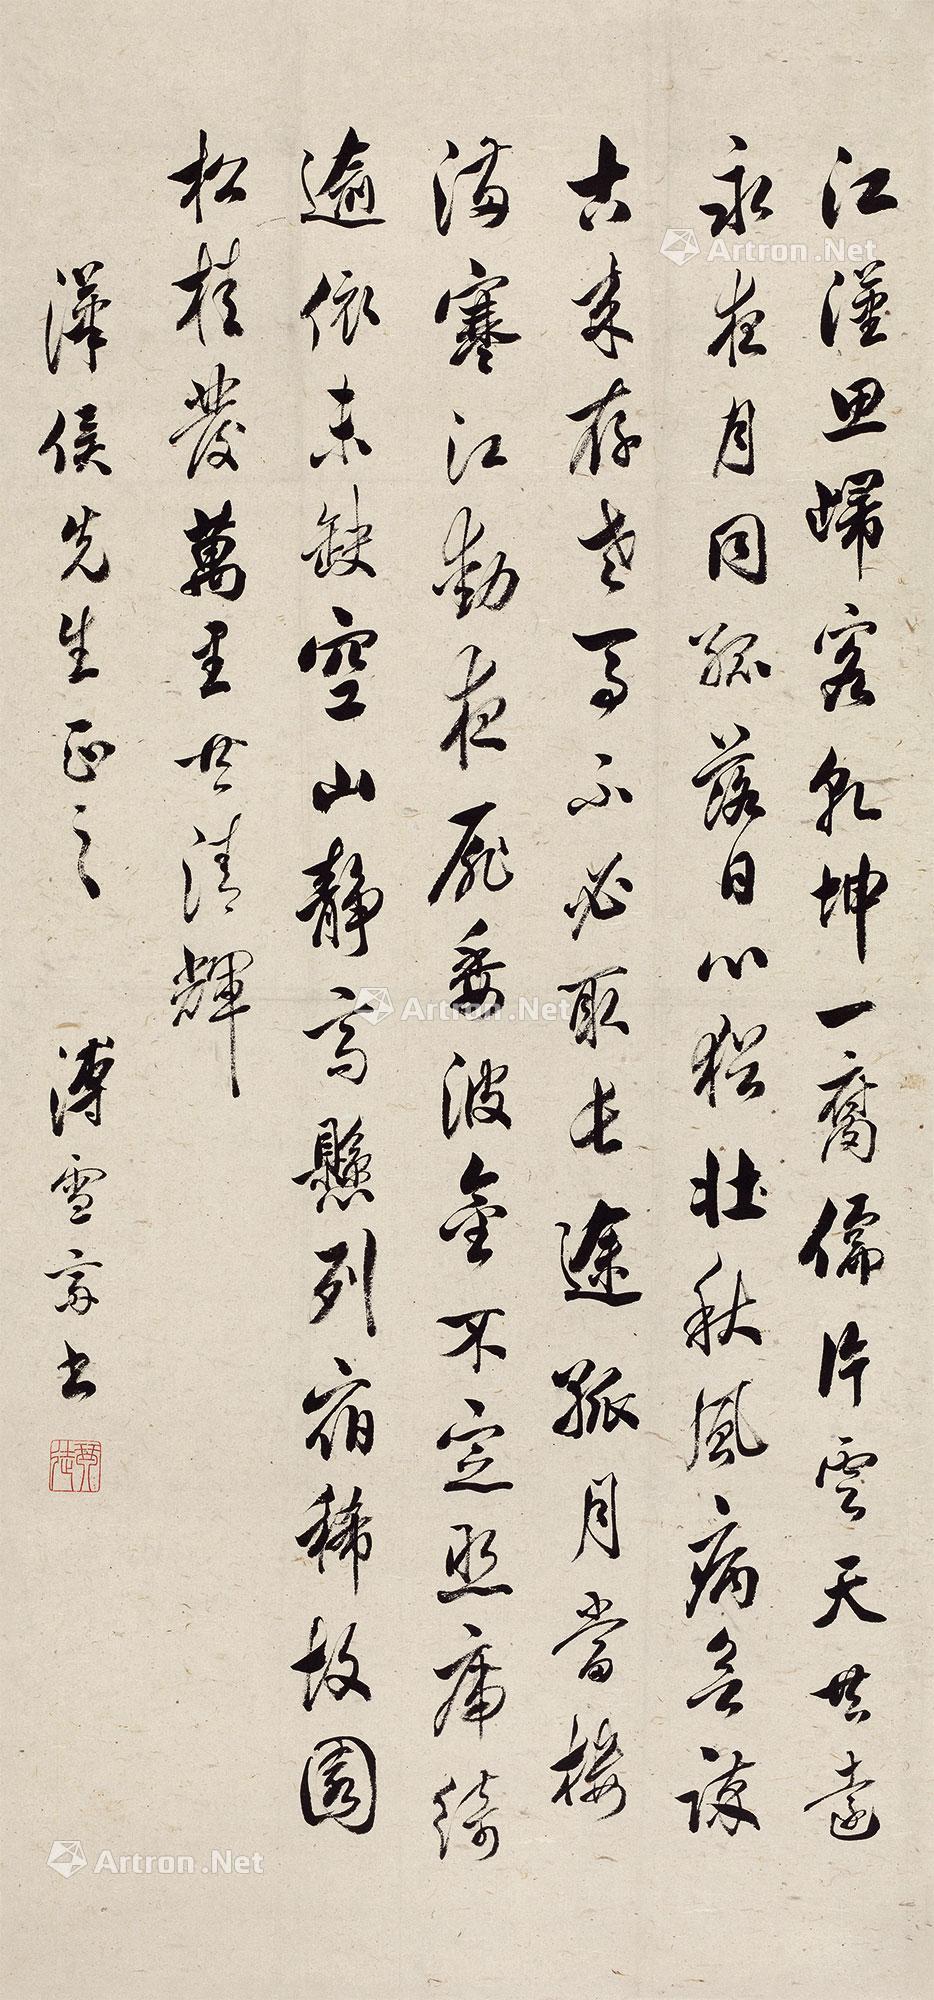 江漢思歸客乾坤一腐儒片雲天共遠
永夜月同孤落日心猶壯秋風病欲蘇
古來存老馬不必取長途孤月當樓
滿寒江動夜扉委波金不定照席綺
逾依未缺空山靜高懸列宿稀故園
松桂發萬里共清輝
澤侯先生正之 溥雪齋書
Artron.Net
Artron.Net
Artron.Net